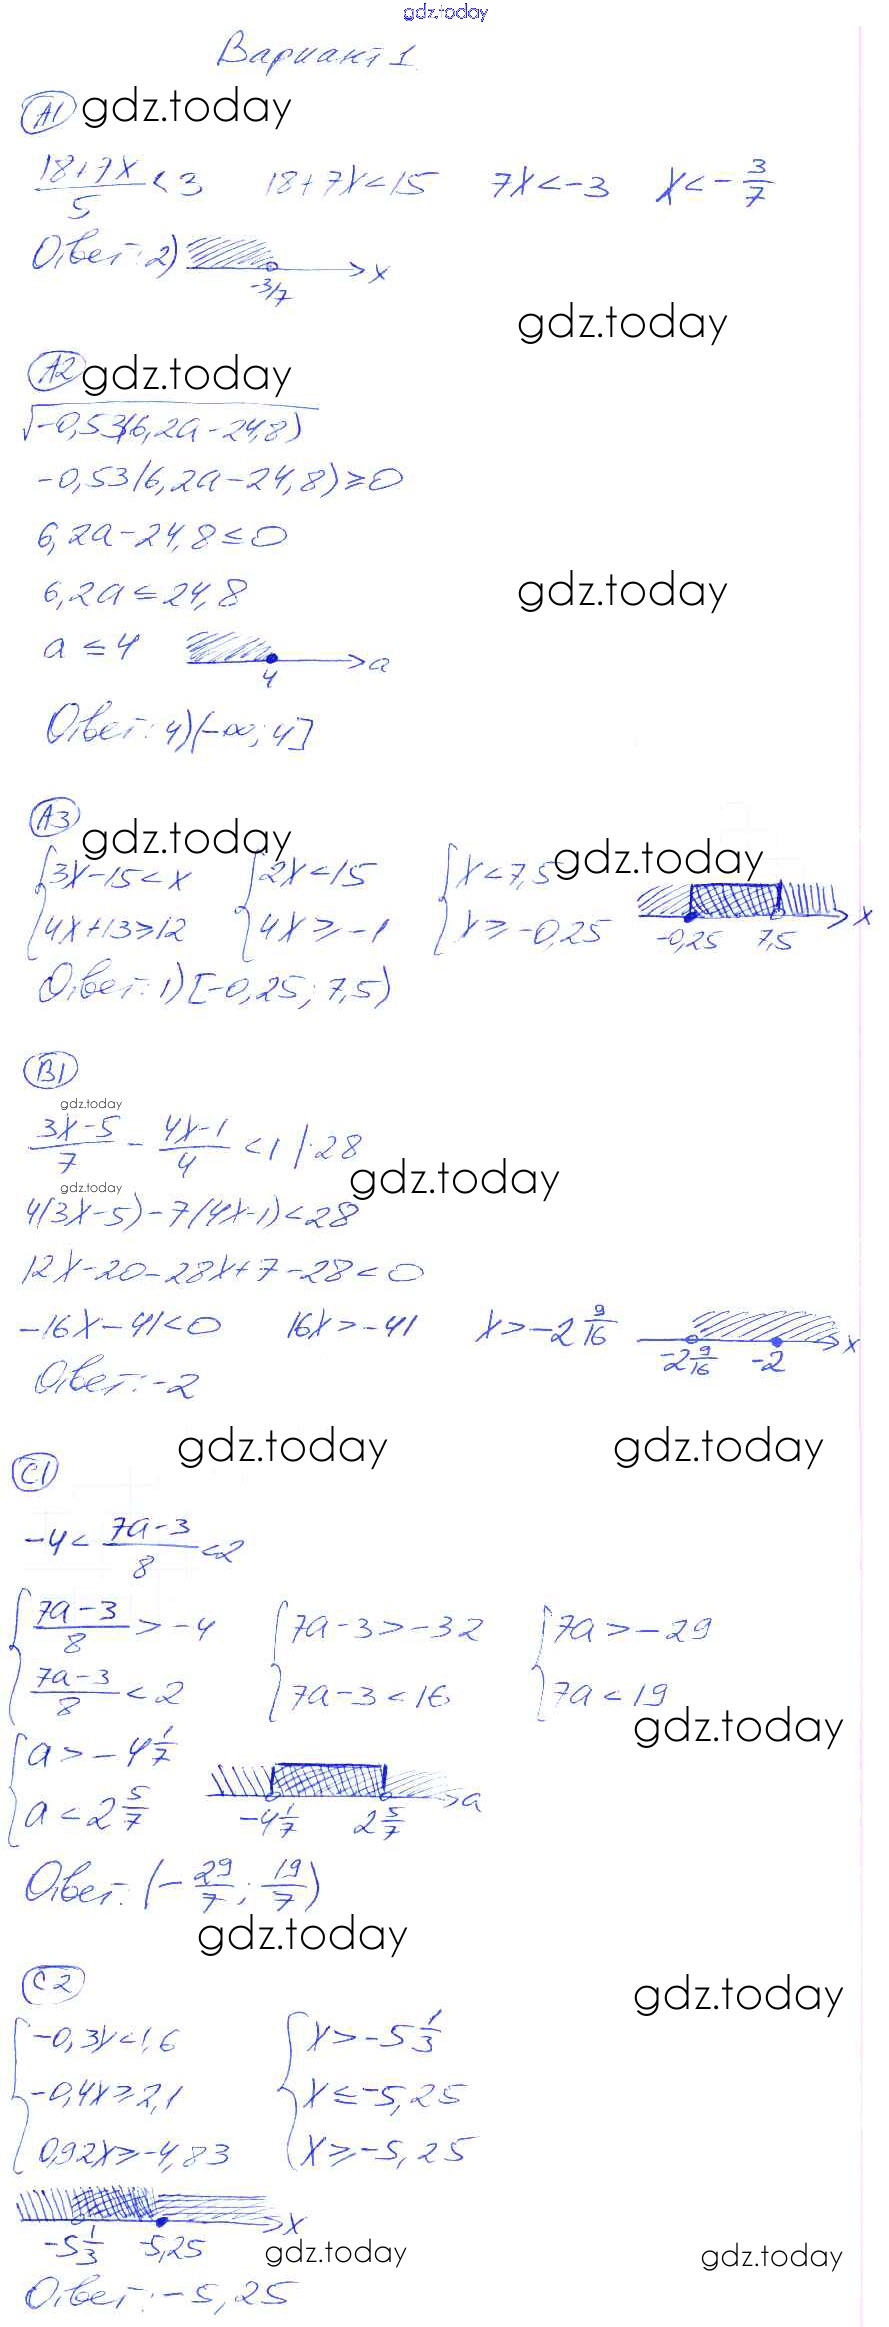 gdz.today
Вариант 1
А1 gdz.today
(18+7x)/5 < 3   18+7x<15   7x<-3   x<-3/7
Ответ: 2) -3/7 x
gdz.today
А2 gdz.today
√(-0,53(6,2a-24,8))
-0,53(6,2a-24,8)≥0
6,2a-24,8≤0
6,2a≤24,8 gdz.today
a≤4   4 a
Ответ: 4) (-∞; 4]
А3 gdz.today gdz.today
{3x-15<x   {2x<15   {x<7,5
{4x+13≥12   {4x≥-1   {x≥-0,25   -0,25 7,5 x
Ответ: 1) [-0,25; 7,5)
В1
gdz.today
(3x-5)/7 - (4x-1)/4 <1 |·28
gdz.today gdz.today
4(3x-5)-7(4x-1)<28
12x-20-28x+7-28<0
-16x-41<0   16x>-41   x>-2 9/16   -2 9/16 -2 x
Ответ: -2
gdz.today gdz.today
С1
-4< (7a-3)/8 <2
{(7a-3)/8 > -4   {7a-3>-32   {7a>-29
{(7a-3)/8 < 2   {7a-3<16   {7a<19
gdz.today
{a>-4 1/7
{a<2 5/7   -4 1/7 2 5/7 a
Ответ: (-29/7; 19/7)
gdz.today
С2 gdz.today
{-0,3x<1,6   {x>-5 1/3
{-0,4x≥2,1   {x≤-5,25
{0,92x≥-4,83   {x≥-5,25
-5 1/3 -5,25 x
gdz.today gdz.today
Ответ: -5,25